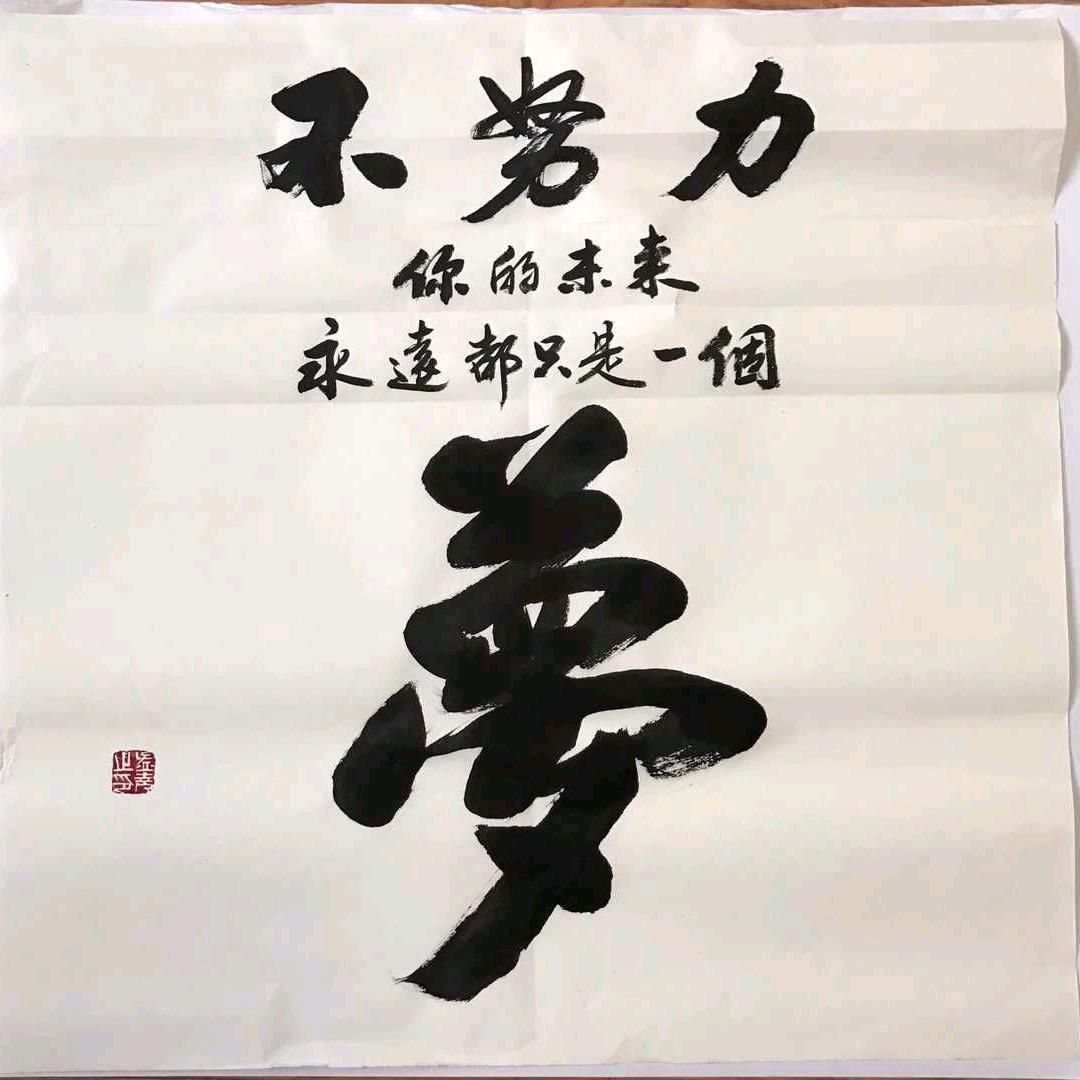 不努力
你的未来
永遠都只是一個
夢